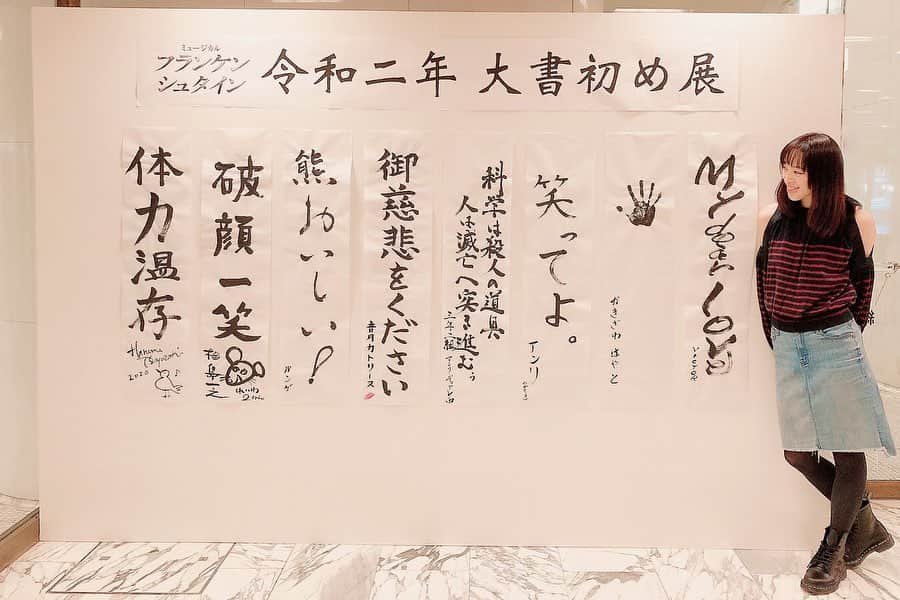 ミュージカル
フランケン
シュタイン
令和二年 大書初め展
かきざわ はやと
笑ってよ。
アンリ
科学は殺人の道具
人は滅亡へ突き進む
御慈悲をください
音月カトリーヌ
熊おいしい!
ルンゲ
破顔一笑
相島一之
体力温存
2020